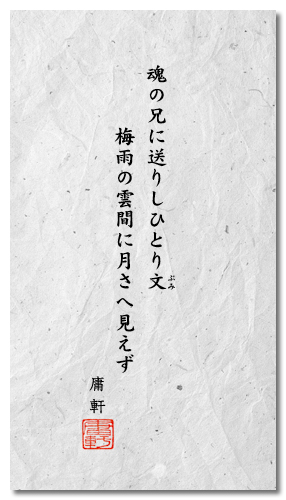 魂の兄に送りしひとり文
ぶみ
梅雨の雲間に月さへ見えず
庸軒